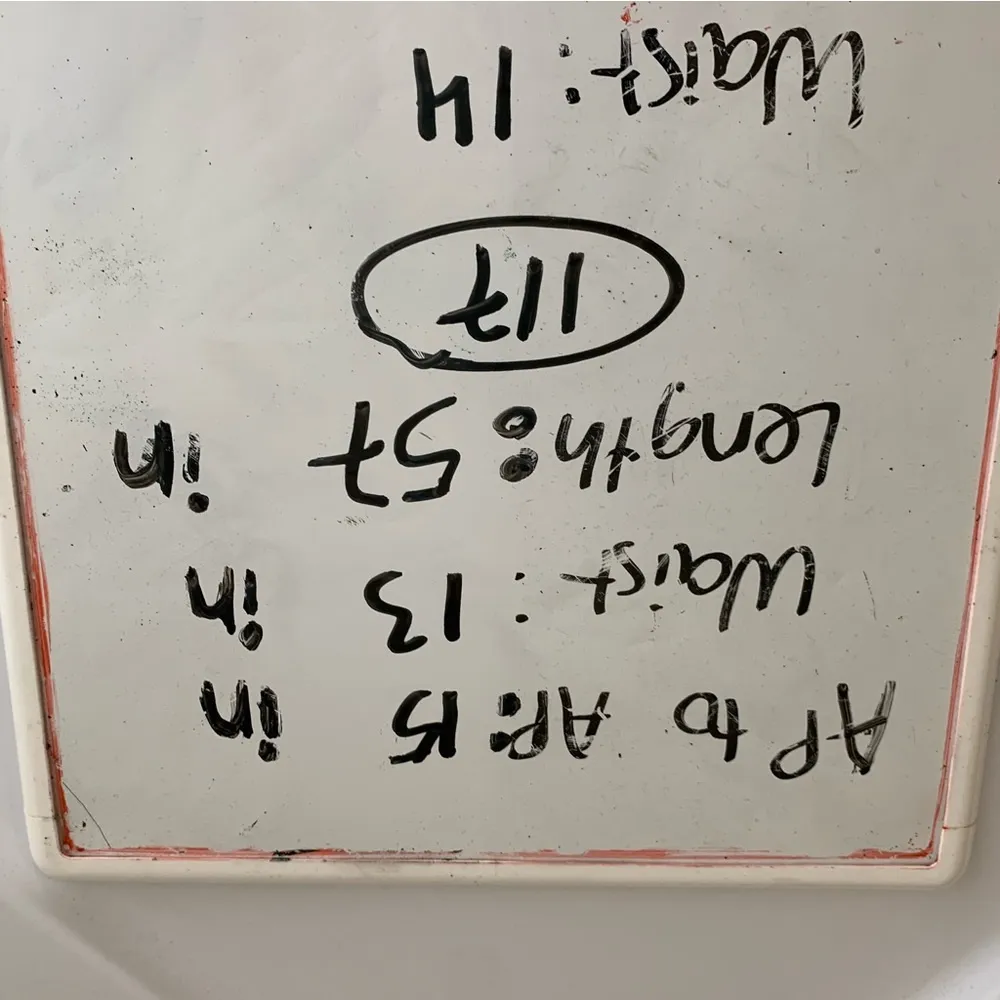 AP to AP: 15 in
Waist: 13 in
Length: 57 in
117
Waist: 14